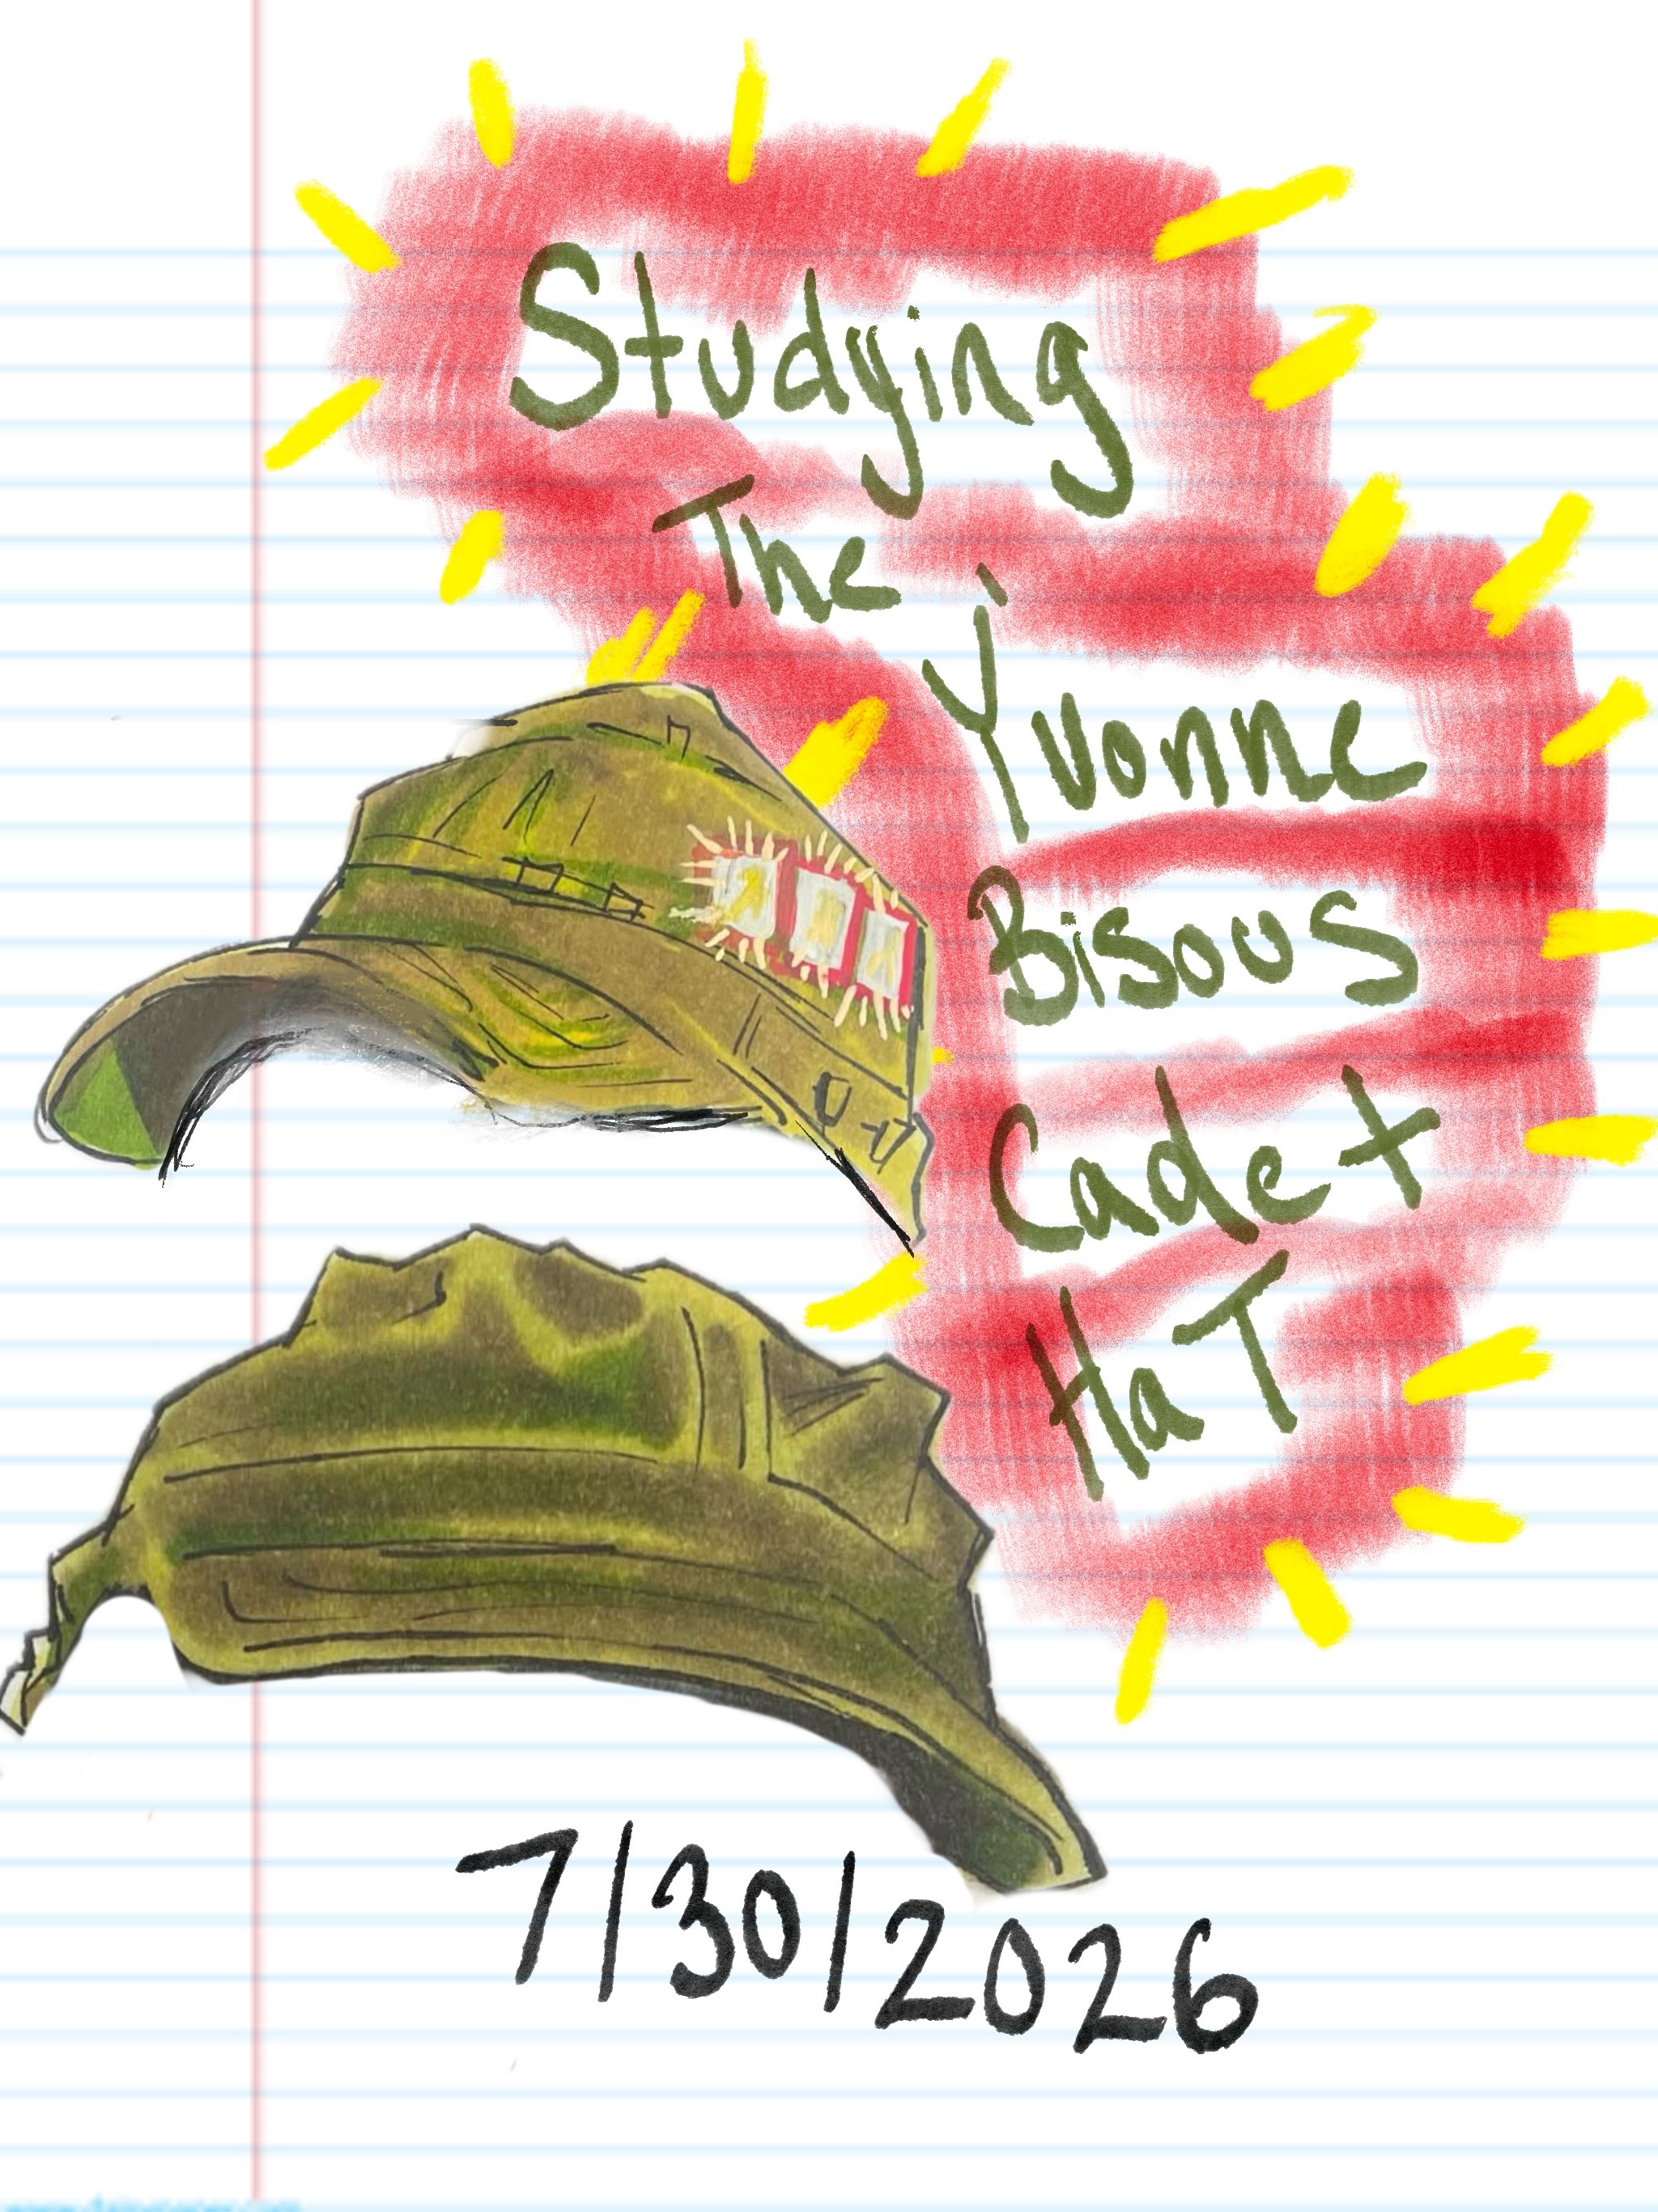 Studying
The
Yvonne
Bisous
Cadet
HaT
7/30/2026